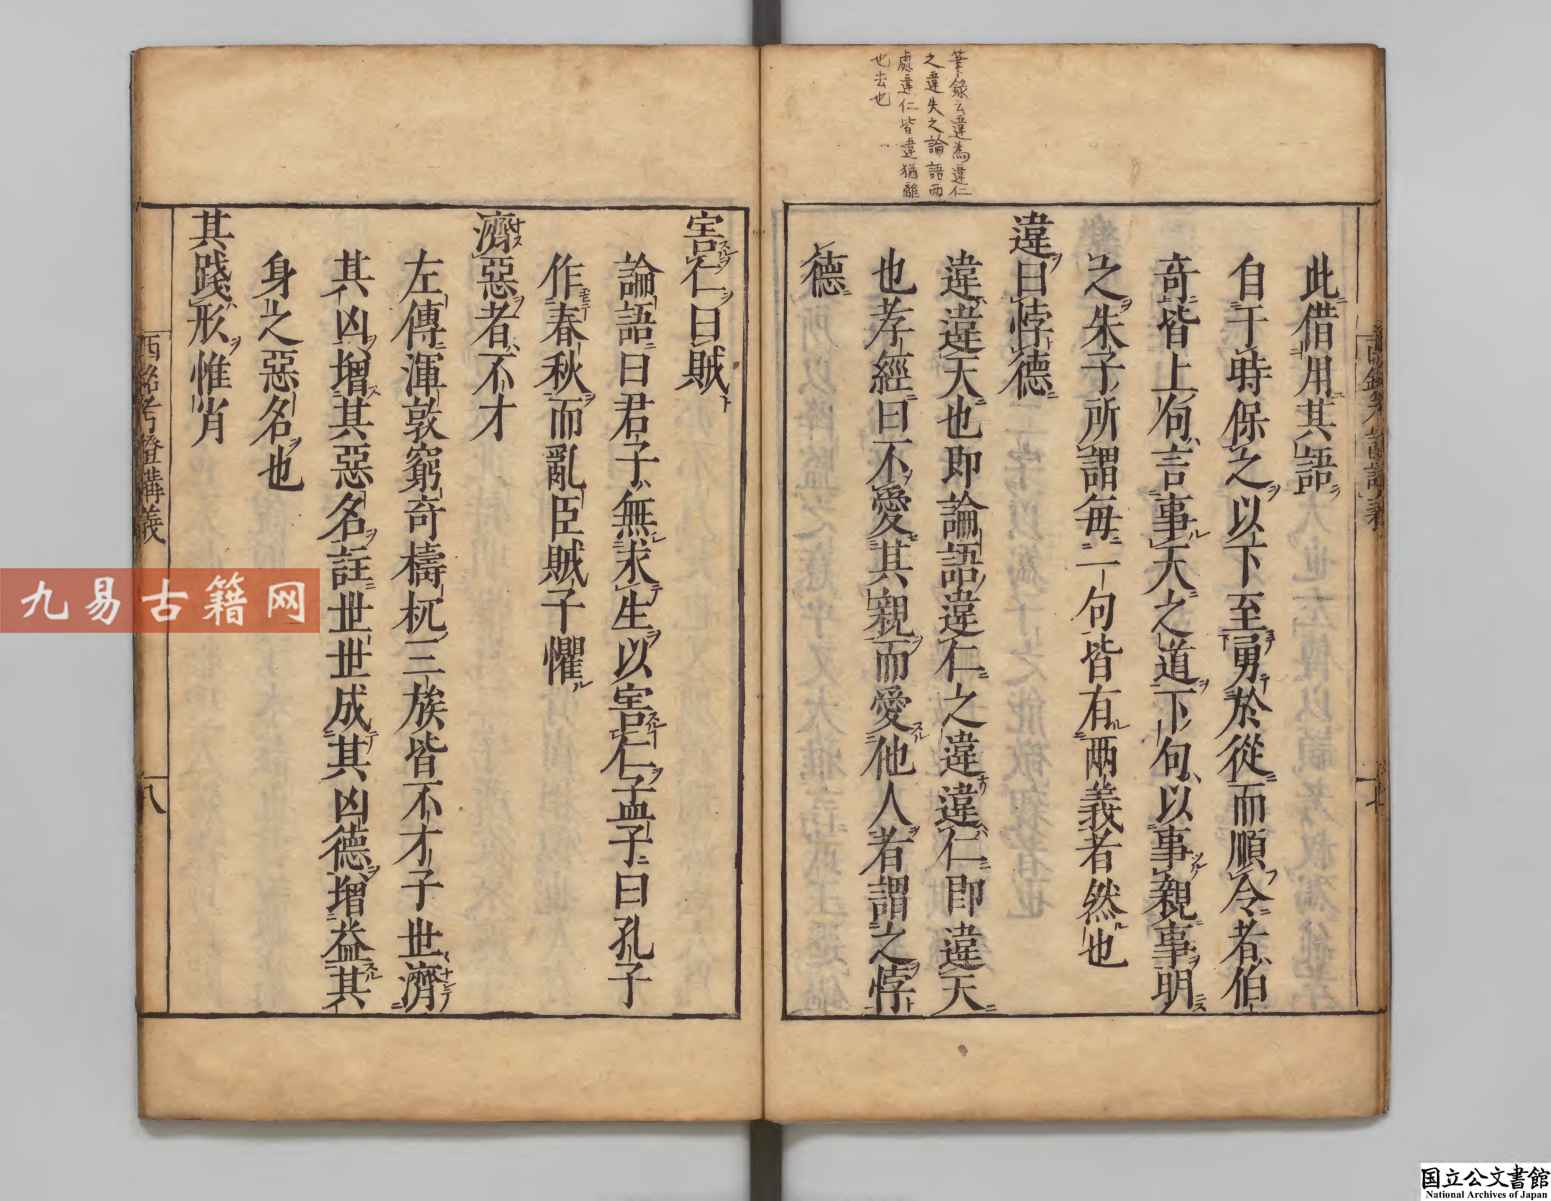 筆錄云違為違仁
之違失之論語西
處違仁皆違猶離
也去也
此借用其語
自于時保之以下至勇於從而順令者伯
奇皆上句言事天之道下句以事親事明
之朱子所謂每一句皆有兩義者然也
違曰悖德
違違天也即論語違仁之違違仁即違天
也孝經曰不愛其親而愛他人者謂之悖
德
害仁曰賊
論語曰君子無求生以害仁孟子曰孔子
作春秋而亂臣賊子懼
濟惡者不才
左傳渾敦窮奇檮杌三族皆不才子世濟
其凶增其惡名註世世成其凶德增益其
身之惡名也
其踐形惟肖
西銘考證講義
八
九易古籍网
国立公文書館
National Archives of Japan